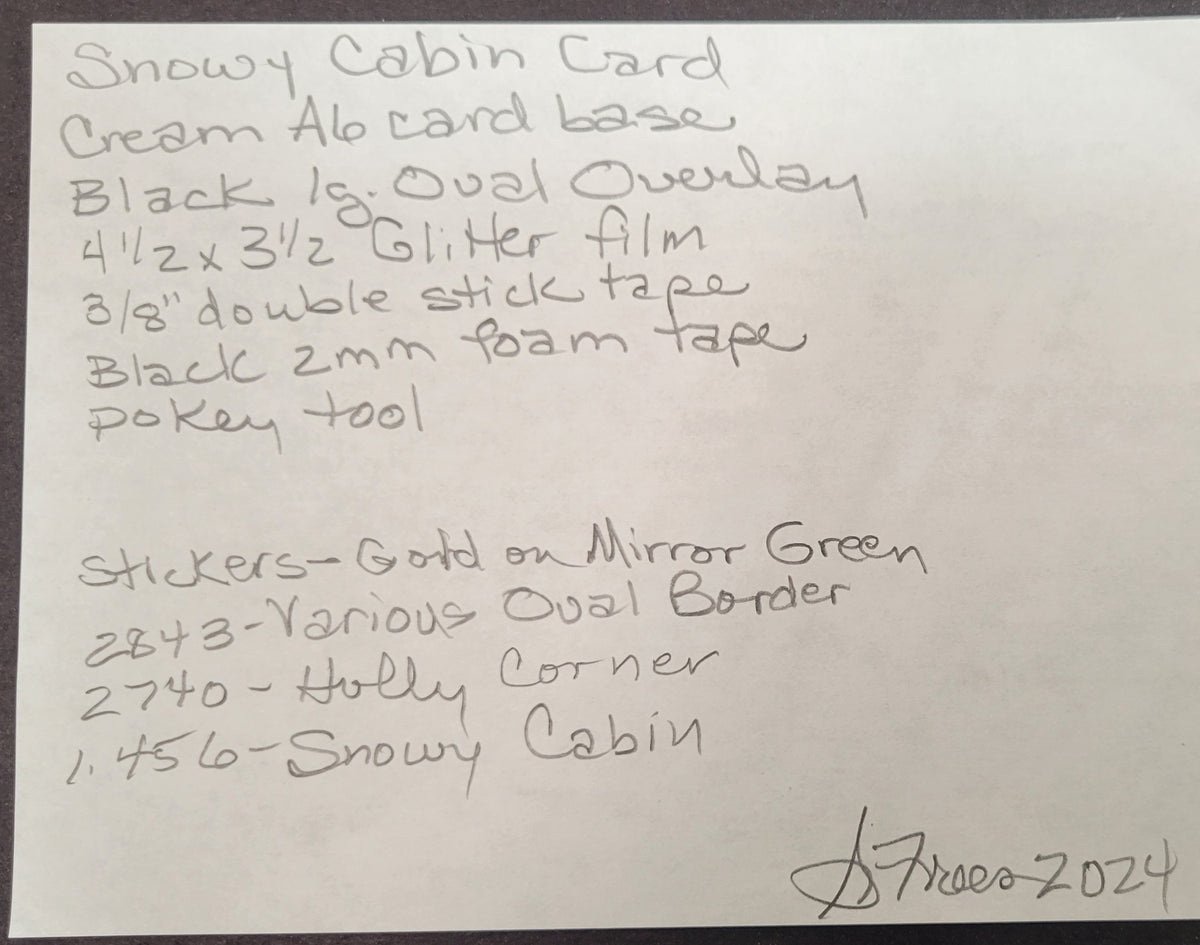 Snowy Cabin Card
Cream A6 card base
Black lg. Oval Overlay
4 1/2 x 3 1/2 Glitter film
3/8" double stick tape
Black 2mm foam tape
pokey tool
Stickers - Gold on Mirror Green
2843 - Various Oval Border
2740 - Holly Corner
1.456 - Snowy Cabin
2024